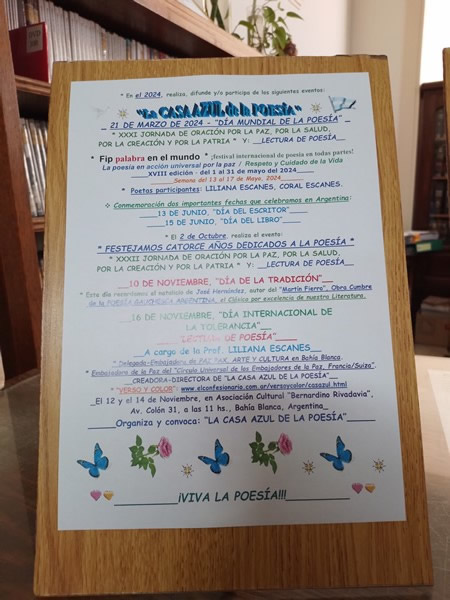 * En el 2024, realiza, difunde y/o participa de los siguientes eventos:
"La CASA AZUL de la POESÍA"
_ 21 DE MARZO DE 2024 - "DÍA MUNDIAL DE LA POESÍA" _
* XXXI JORNADA DE ORACIÓN POR LA PAZ, POR LA SALUD,
POR LA CREACIÓN Y POR LA PATRIA * Y: __LECTURA DE POESÍA__
* Fip palabra en el mundo * ¡festival internacional de poesía en todas partes!
La poesía en acción universal por la paz / Respeto y Cuidado de la Vida
____XVIII edición - del 1 al 31 de mayo del 2024____
Semana del 13 al 17 de Mayo, 2024
* Poetas participantes: LILIANA ESCANES, CORAL ESCANES.
Conmemoración dos importantes fechas que celebramos en Argentina:
___13 DE JUNIO, "DÍA DEL ESCRITOR"___
___15 DE JUNIO, "DÍA DEL LIBRO"___
* El 2 de Octubre, realiza el evento:
* FESTEJAMOS CATORCE AÑOS DEDICADOS A LA POESÍA *
* XXXII JORNADA DE ORACIÓN POR LA PAZ, POR LA SALUD,
POR LA CREACIÓN Y POR LA PATRIA * Y: __LECTURA DE POESÍA__
__10 DE NOVIEMBRE, "DÍA DE LA TRADICIÓN"__
* Este día recordamos el natalicio de José Hernández, autor del "Martín Fierro", Obra Cumbre
de la POESÍA GAUCHESCA ARGENTINA, el Clásico por excelencia de nuestra Literatura.
_16 DE NOVIEMBRE, "DÍA INTERNACIONAL DE
LA TOLERANCIA"__
__LECTURA DE POESÍA__
__A cargo de la Prof. LILIANA ESCANES__
* Delegada-Embajadora de PAZ PAX, ARTE Y CULTURA en Bahía Blanca.
* Embajadora de la Paz del "Círculo Universal de los Embajadores de la Paz, Francia/Suiza".
__CREADORA-DIRECTORA DE "LA CASA AZUL DE LA POESÍA"__
* "VERSO Y COLOR": www.elconfesionario.com.ar/versoycolor/casazul.html
_El 12 y el 14 de Noviembre, en Asociación Cultural "Bernardino Rivadavia",
Av. Colón 31, a las 11 hs., Bahía Blanca, Argentina_
____Organiza y convoca: "LA CASA AZUL DE LA POESÍA"____
________¡VIVA LA POESÍA!!!________